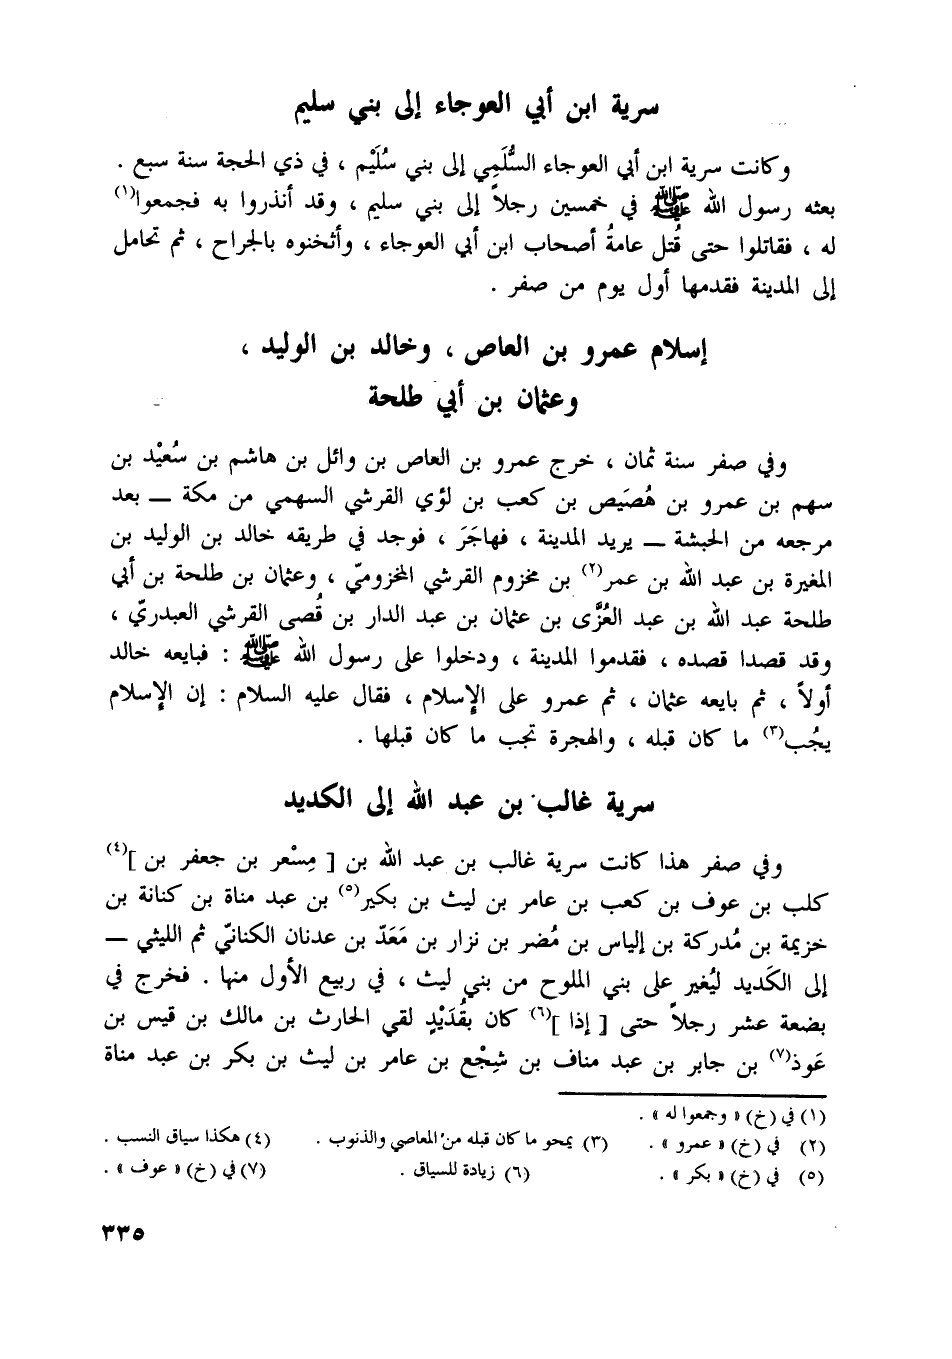 سرية ابن أبي العوجاء إلى بني سليم
وكانت سرية ابن أبي العوجاء السُّلَمِي إلى بني سُلَيْم ، في ذي الحجة سنة سبع .
بعثه رسول الله ﷺ في خمسين رجلاً إلى بني سليم ، وقد أنذروا به فجمعوا(١)
له ، فقاتلوا حتى قُتل عامةُ أصحاب ابن أبي العوجاء ، وأثخنوه بالجراح ، ثم تحامل
إلى المدينة فقدمها أول يوم من صفر .
إسلام عمرو بن العاص ، وخالد بن الوليد ،
وعثمان بن أبي طلحة
وفي صفر سنة ثمان ، خرج عمرو بن العاص بن وائل بن هاشم بن سُعيْد بن
سهم بن عمرو بن هُصَيص بن كعب بن لؤي القرشي السهمي من مكة ــ بعد
مرجعه من الحبشة ــ يريد المدينة ، فهاجَرَ ، فوجد في طريقه خالد بن الوليد بن
المغيرة بن عبد الله بن عمر(٢) بن مخزوم القرشي المخزوميّ ، وعثمان بن طلحة بن أبي
طلحة عبد الله بن عبد العُزَّى بن عثمان بن عبد الدار بن قُصى القرشي العبدريّ ،
وقد قصدا قصده ، فقدموا المدينة ، ودخلوا على رسول الله ﷺ : فبايعه خالد
أولاً ، ثم بايعه عثمان ، ثم عمرو على الإسلام ، فقال عليه السلام : إن الإسلام
يجُب(٣) ما كان قبله ، والهجرة تجب ما كان قبلها .
سرية غالب بن عبد الله إلى الكديد
وفي صفر هذا كانت سرية غالب بن عبد الله بن [ مِسْعر بن جعفر بن ](٤)
كلب بن عوف بن كعب بن عامر بن ليث بن بكير(٥) بن عبد مناة بن كنانة بن
خزيمة بن مُدركة بن إلياس بن مُضر بن نزار بن مَعَدّ بن عدنان الكنانيّ ثم الليثي ــ
إلى الكَديد ليُغير على بني الملوح من بني ليث ، في ربيع الأول منها . فخرج في
بضعة عشر رجلاً حتى [ إذا ](٦) كان بقُدَيْدٍ لقي الحارث بن مالك بن قيس بن
عَوذ(٧) بن جابر بن عبد مناف بن شِجْع بن عامر بن ليث بن بكر بن عبد مناة
(١) في (خ) « وجمعوا له » .
(٢) في (خ) « عمرو » . (٣) يمحو ما كان قبله من المعاصي والذنوب . (٤) هكذا سياق النسب .
(٥) في (خ) « بكر » . (٦) زيادة للسياق . (٧) في (خ) « عوف » .
٣٣٥